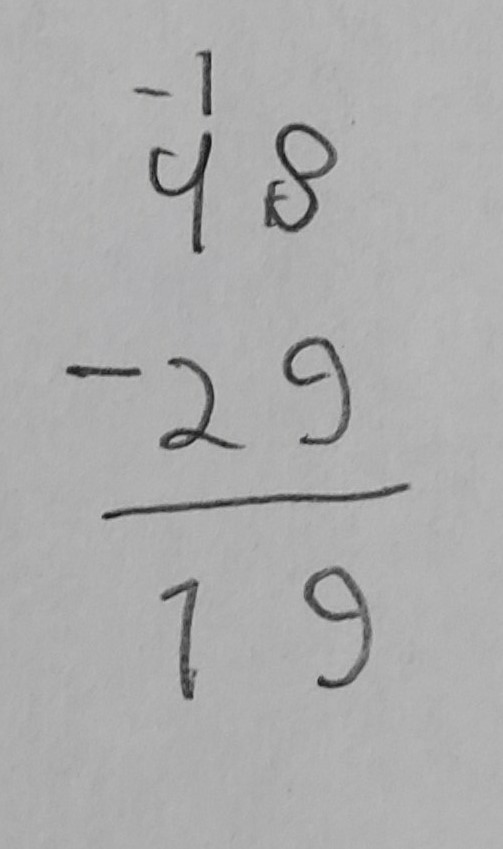 -1
48
-29
19